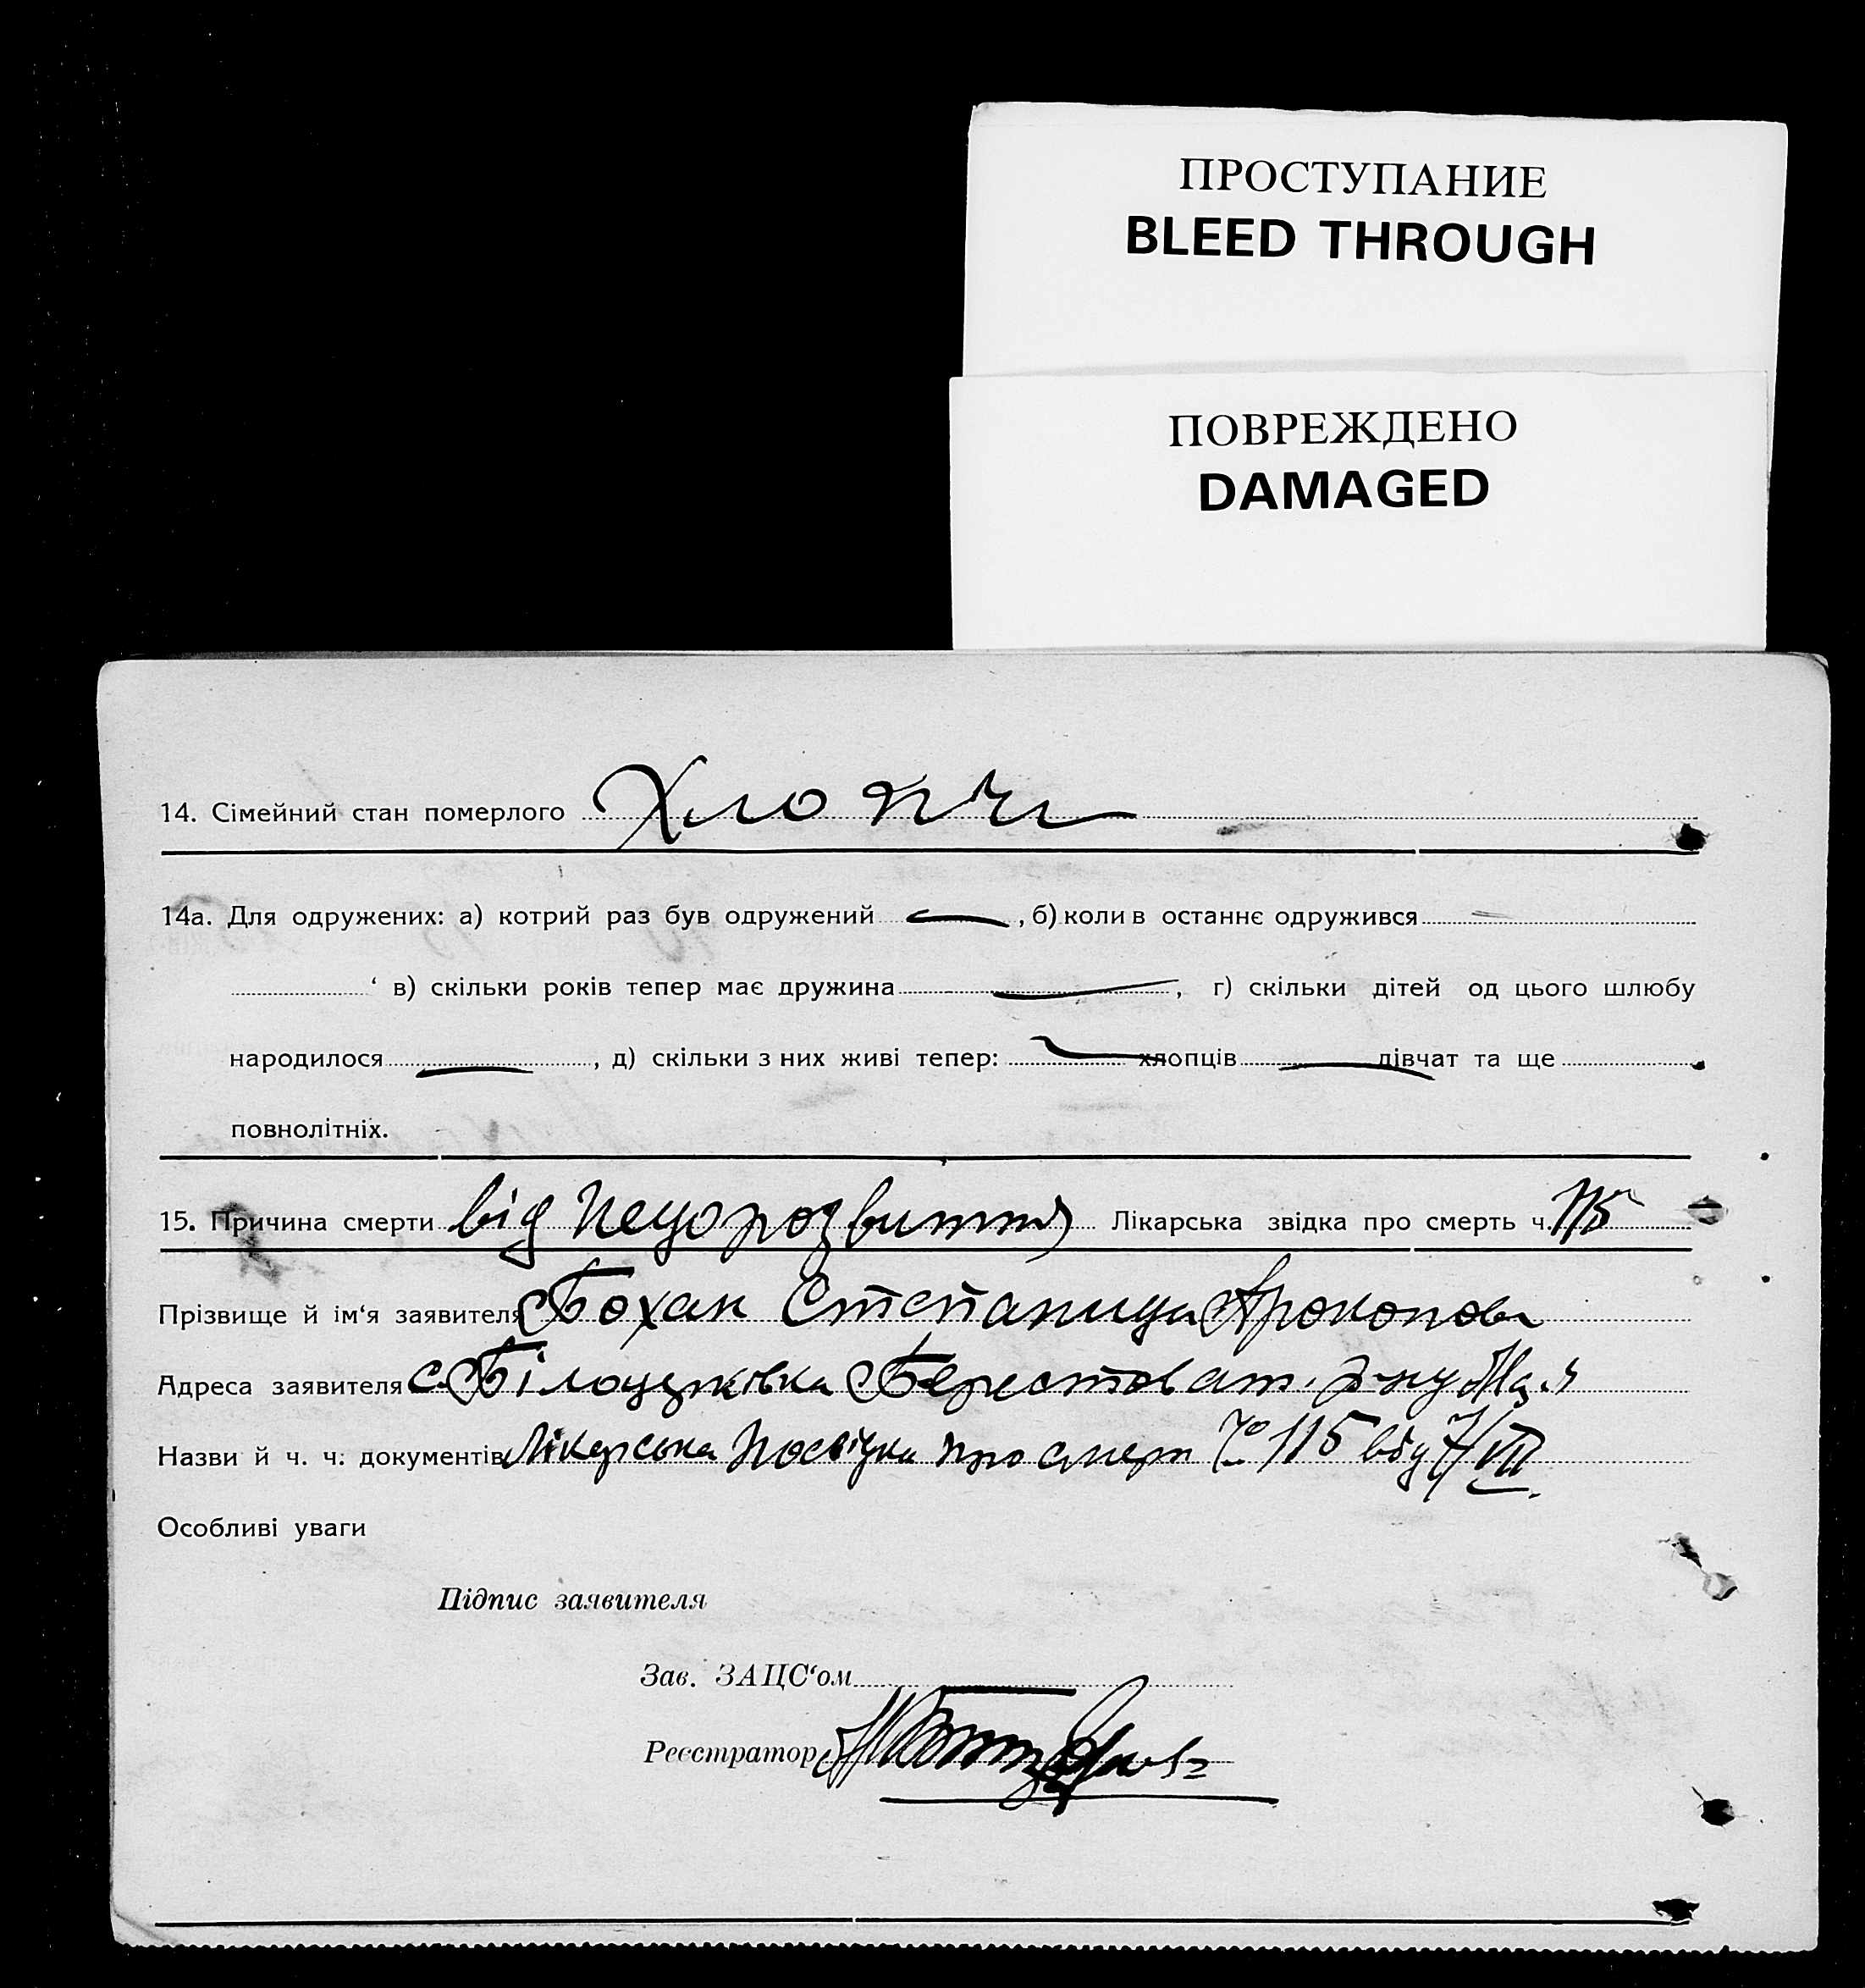 ПРОСТУПАНИЕ
BLEED THROUGH
ПОВРЕЖДЕНО
DAMAGED
14. Сімейний стан померлого Хлопч
14а. Для одружених: а) котрий раз був одружений —, б) коли в останнє одружився
‘ в) скільки років тепер має дружина —, г) скільки дітей од цього шлюбу
народилося —, д) скільки з них живі тепер: — хлопців — дівчат та ще
повнолітніх.
15. Причина смерти від недорозвиття Лікарська звідка про смерть ч. 115
Прізвище й ім‘я заявителя Бохан Степанида Прокопов
Адреса заявителя с. Білоцерківка Берестоват. р-ну
Назви й ч. ч. документів Лікарська посвідка про смерт № 115 від 7/VII
Особливі уваги
Підпис заявителя
Зав. ЗАЦС‘ом
Реєстратор